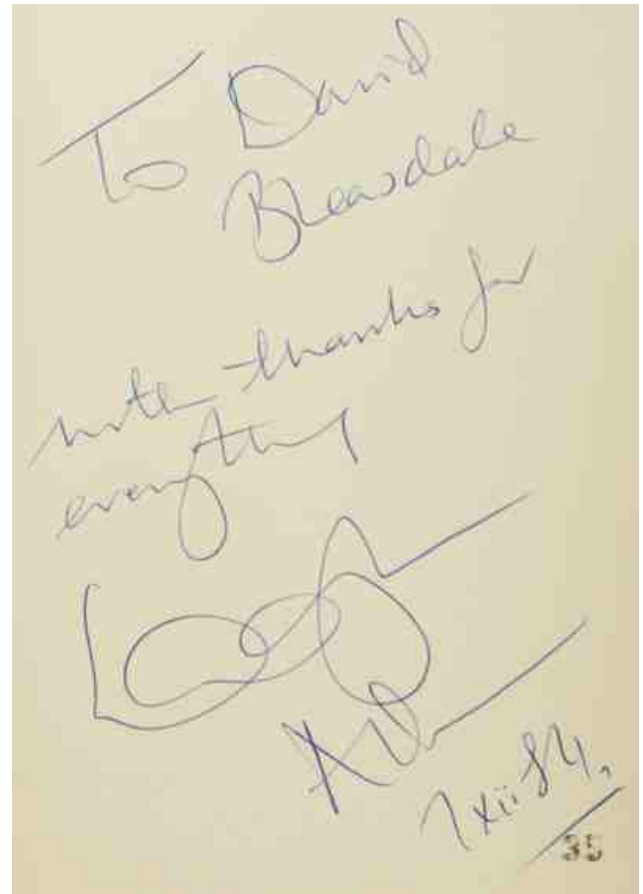 To David
Bleasdale
with thanks for
everything
1 xii 84.
35